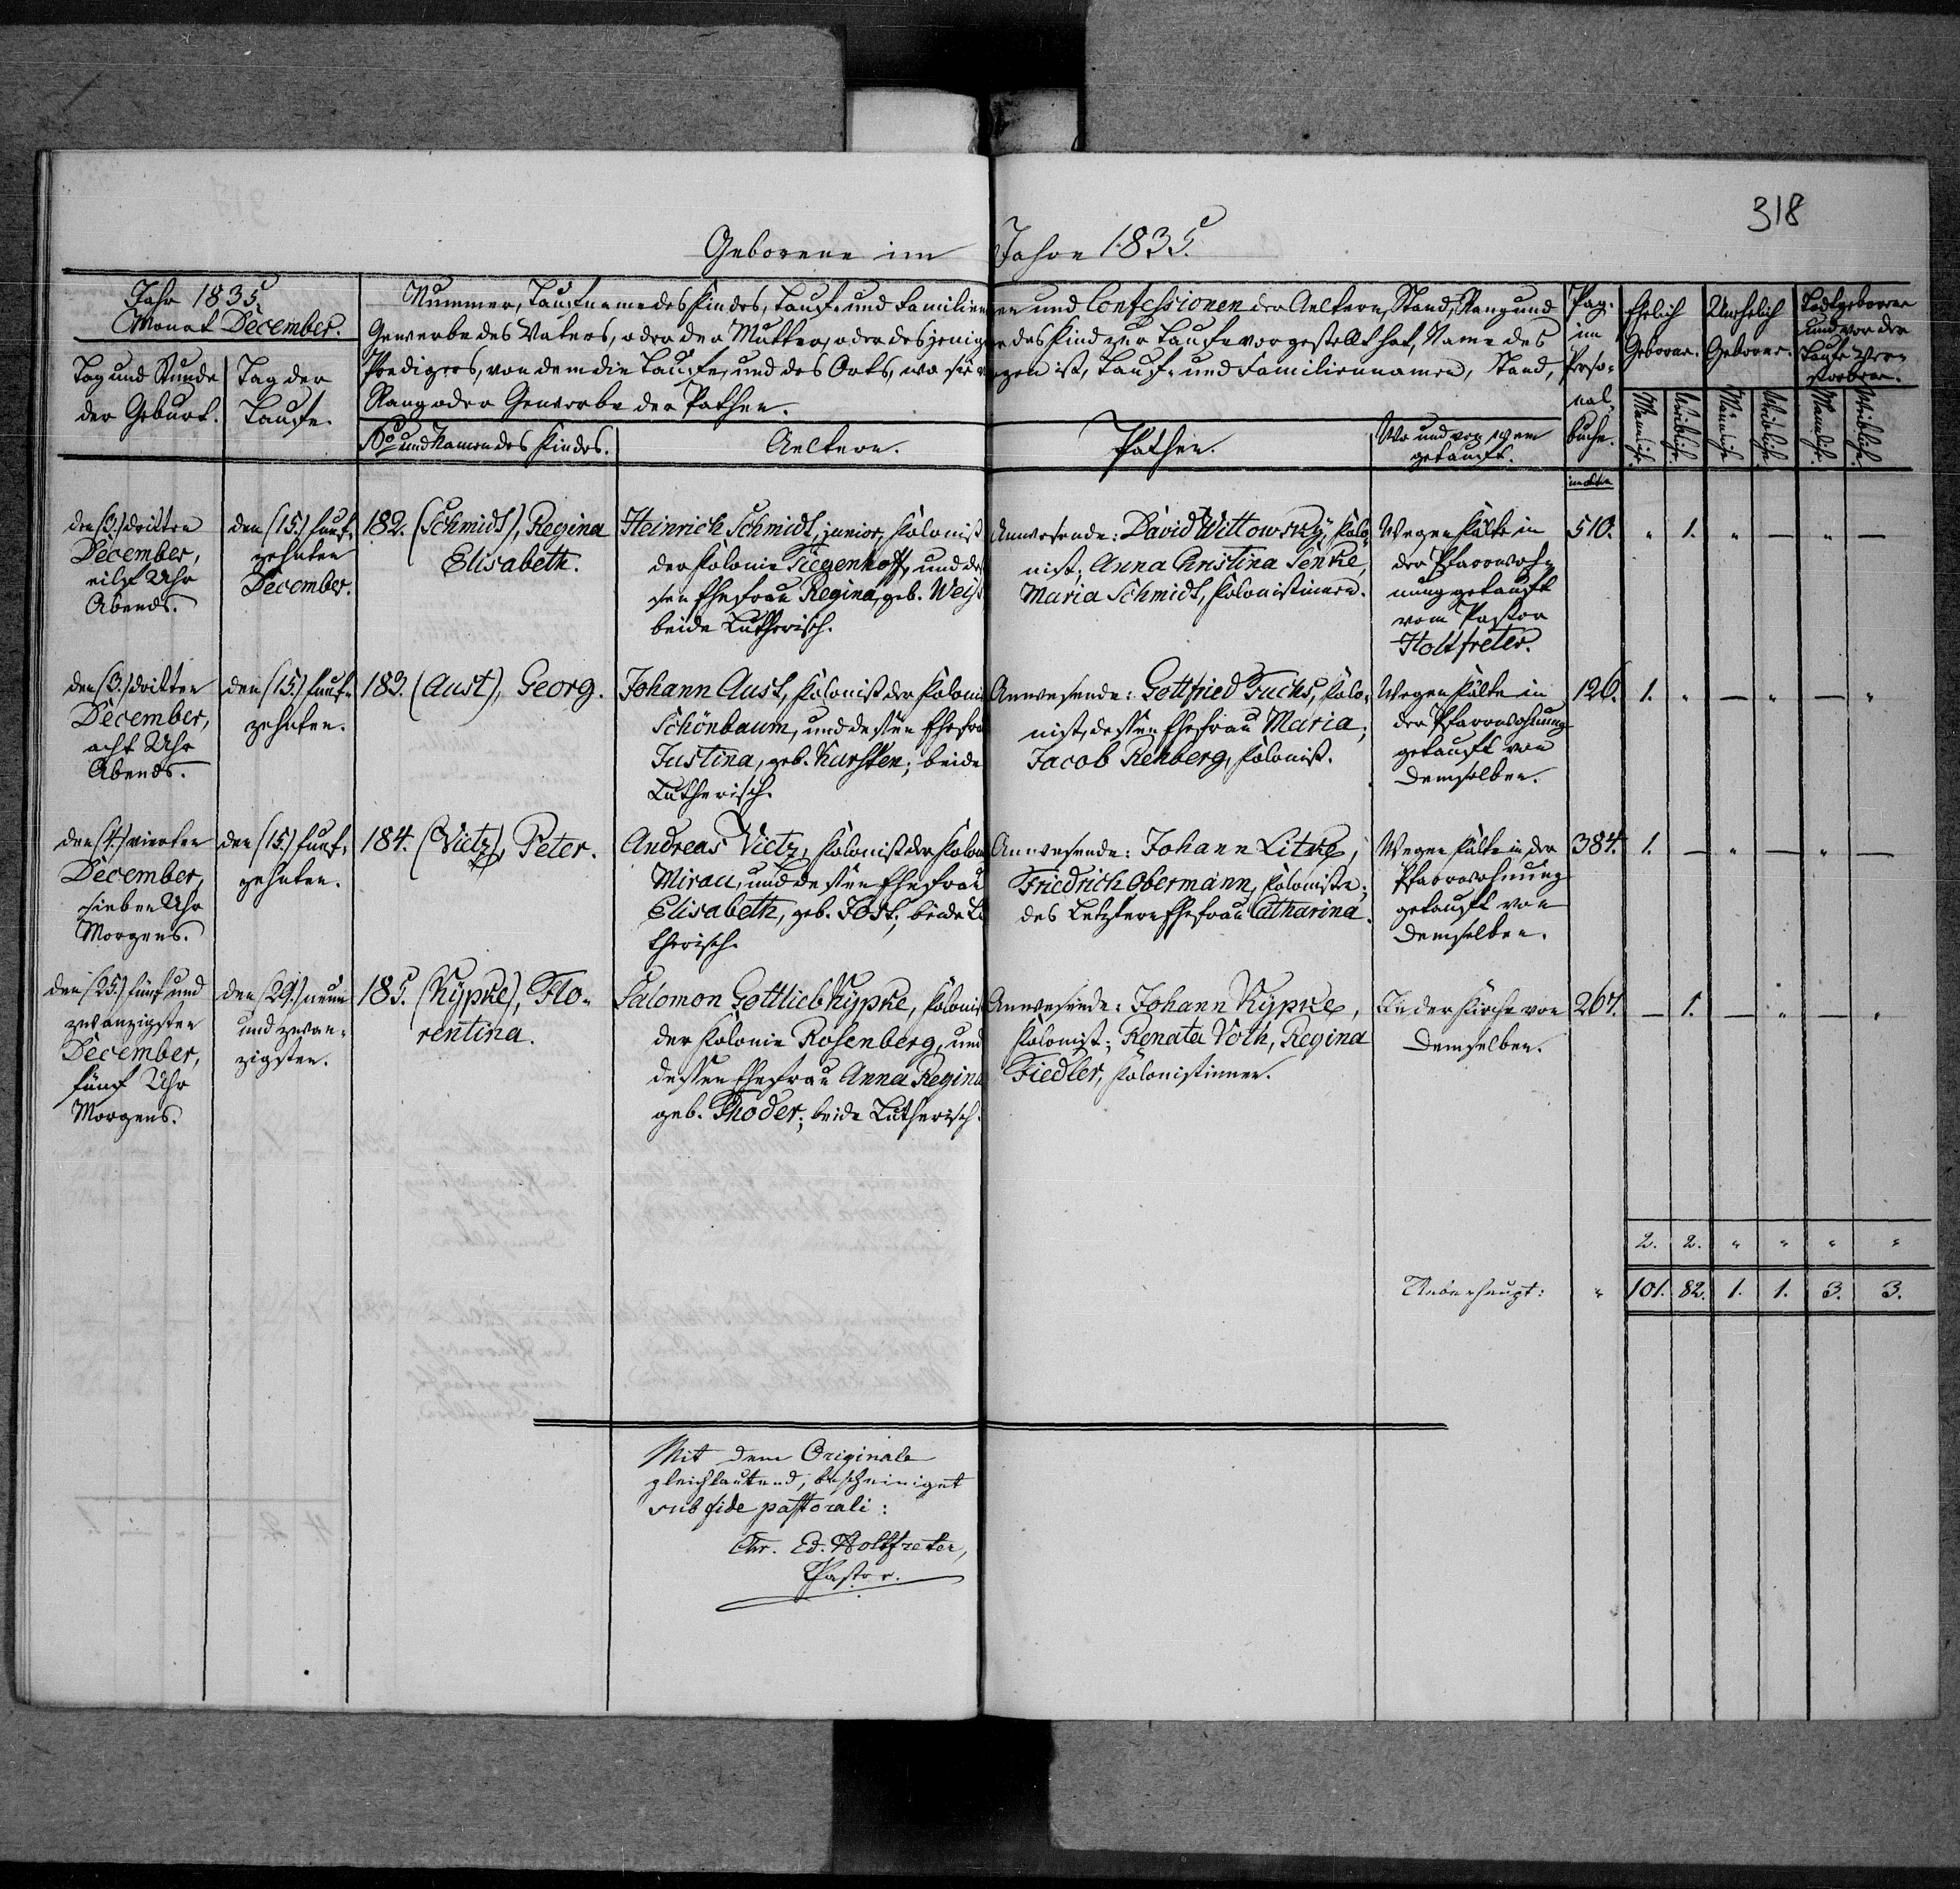 318
Geborene im Jahre 1835.
Jahr 1835.
Monat December.
Tag und Stunde
der Geburt.
Tag der
Taufe.
Nummer, Taufname des Kindes, Tauf- und Familien
en und Confessionen der Aeltern, Stand, Rang und
Gewerbe des Vaters, oder der Mutter, oder desjenig
das Kind zur Taufe vorgestellt hat, Name des
Predigers, von dem die Taufe, und des Orts, wo sie
gen ist, Tauf- und Familiennamen, Stand,
Rang oder Gewerbe der Pathen.
No und Namen des Kindes.
Aeltern.
Pathen.
Wo und von wem
getauft.
Pag.
im
Perso-
nal-
buche.
Ehelich
Geborne.
Unehelich
Geborne.
Todtgeborne
und vor der
Taufe Ver-
storbene.
Männliche.
Weibliche.
Männliche
Weibliche
Männliche.
Weibliche.
den (3.) dritten
December,
eilf Uhr
Abends.
den (15.) fünf-
zehnten
December.
182. (Schmidt), Regina
Elisabeth.
Heinrich Schmidt, junior, Kolonist
der Kolonie Tiegenhoff, und des
sen Ehefrau Regina, geb. Weiß
beide Lutherisch.
Anwesende: David Wittowsky, Kolo-
nist; Anna Christina Senke,
Maria Schmidt, Kolonistinnen.
Wegen Kälte in
der Pfarrwoh-
nung getauft
vom Pastor
Holtfreter.
510. " 1. " — " —
den (3.) dritten
December,
acht Uhr
Abends.
den (15.) fünf-
zehnten.
183. (Aust), Georg.
Johann Aust, Kolonist der Koloni
Schönbaum, und dessen Ehefra
Justina, geb. Karsten; beide
Lutherisch.
Anwesende: Gottfried Fuchs, Kolo-
nist, dessen Ehefrau Maria;
Jacob Rehberg, Kolonist.
Wegen Kälte in
der Pfarrwohnung
getauft von
demselben.
126. 1. " — " — "
den (4.) vierten
December,
sieben Uhr
Morgens.
den (15.) fünf-
zehnten.
184. (Vietz), Peter.
Andreas Vietz, Kolonist der Kolon
Mirau, und dessen Ehefrau
Elisabeth, geb. Jost; beide Lu
therisch.
Anwesende: Johann Litke,
Friedrich Obermann, Koloniste;
des Letztern Ehefrau Catharina.
Wegen Kälte in der
Pfarrwohnung
getauft von
demselben.
384. 1. — " — " —
den (25.) fünf und
zwanzigsten
December,
fünf Uhr
Morgens.
den (29.) neun
und zwan-
zigsten.
185. (Kypke), Flo-
rentina.
Salomon Gottlieb Kypke, Kolonist
der Kolonie Rosenberg, und
dessen Ehefrau Anna Regina
geb. Thoder; beide Lutherisch.
Anwesende: Johann Kypke,
Kolonist; Renata Voth, Regina
Fiedler, Kolonistinnen.
In der Kirche von
demselben.
267. — 1. — " — "
2. 2. " " " "
Ueberhaupt: " 101. 82. 1. 1. 3. 3.
Mit dem Originale
gleichlautend, bescheiniget
sub fide pastorali:
Chr. Ed. Holtfreter,
Pastor.